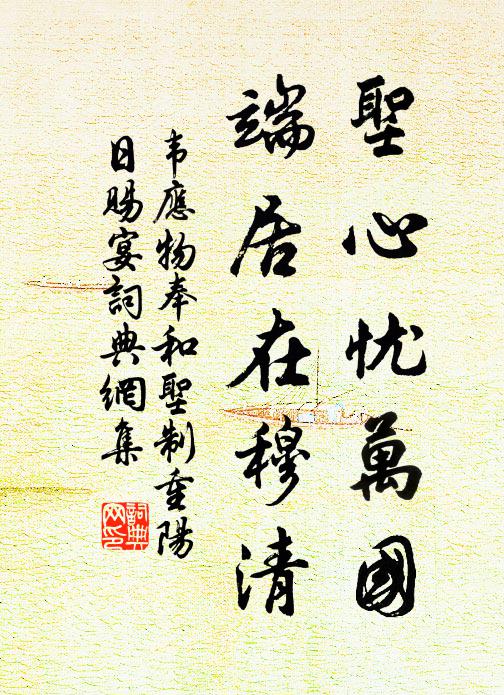 聖心忧萬國
端居在穆清
韦應物奉和聖制重陽
日賜宴詞典網集
詞典
网印